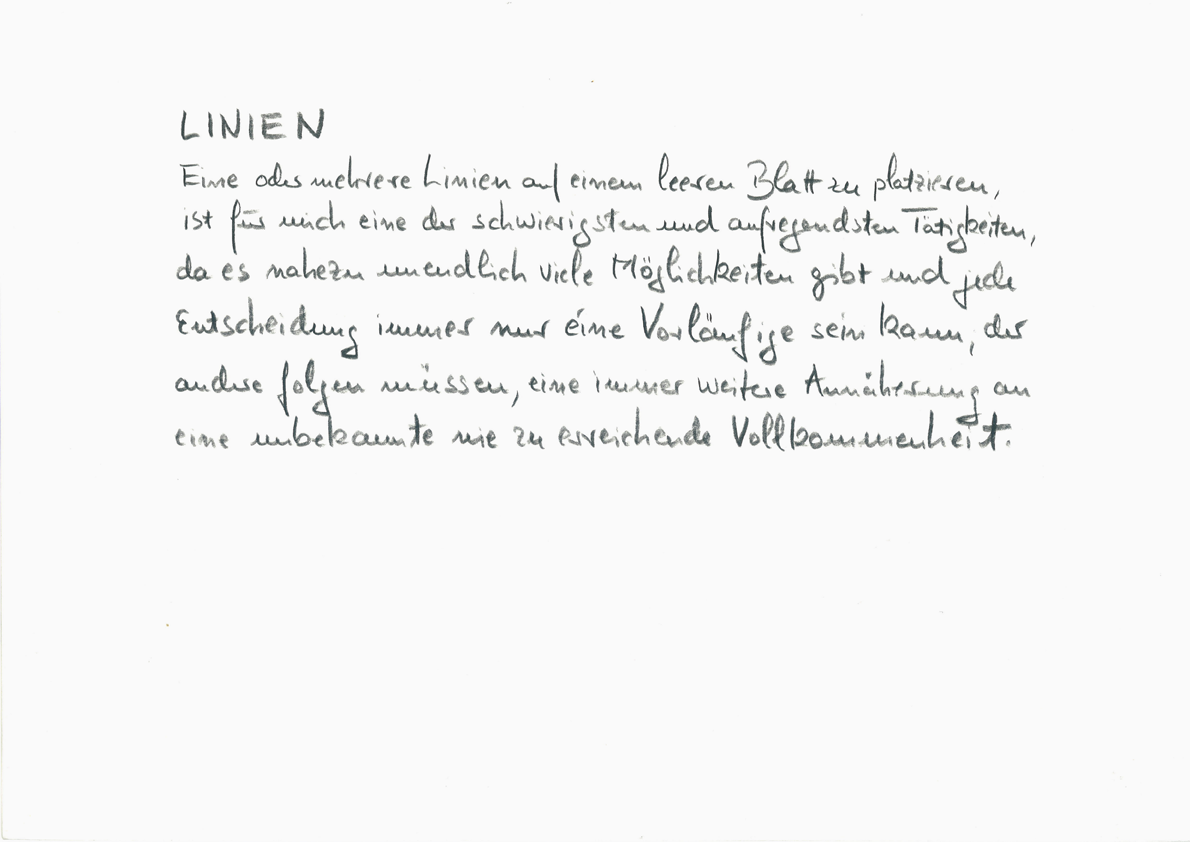 LINIEN
Eine oder mehrere Linien auf einem leeren Blatt zu platzieren,
ist für mich eine der schwierigsten und aufregendsten Tätigkeiten,
da es nahezu unendlich viele Möglichkeiten gibt und jede
Entscheidung immer nur eine Vorläufige sein kann, der
andere folgen müssen, eine immer weitere Annäherung an
eine unbekannte nie zu erreichende Vollkommenheit.